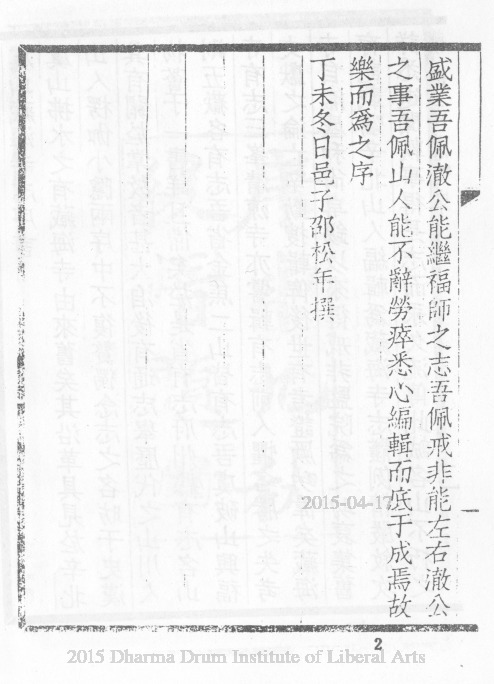 盛業吾佩澈公能繼福師之志吾佩戒非能左右澈公
之事吾佩山人能不辭勞瘁悉心編輯而底于成焉故
樂而為之序
丁未冬日邑子邵松年撰
一
2015-04-17
2
2015 Dharma Drum Institute of Liberal Arts